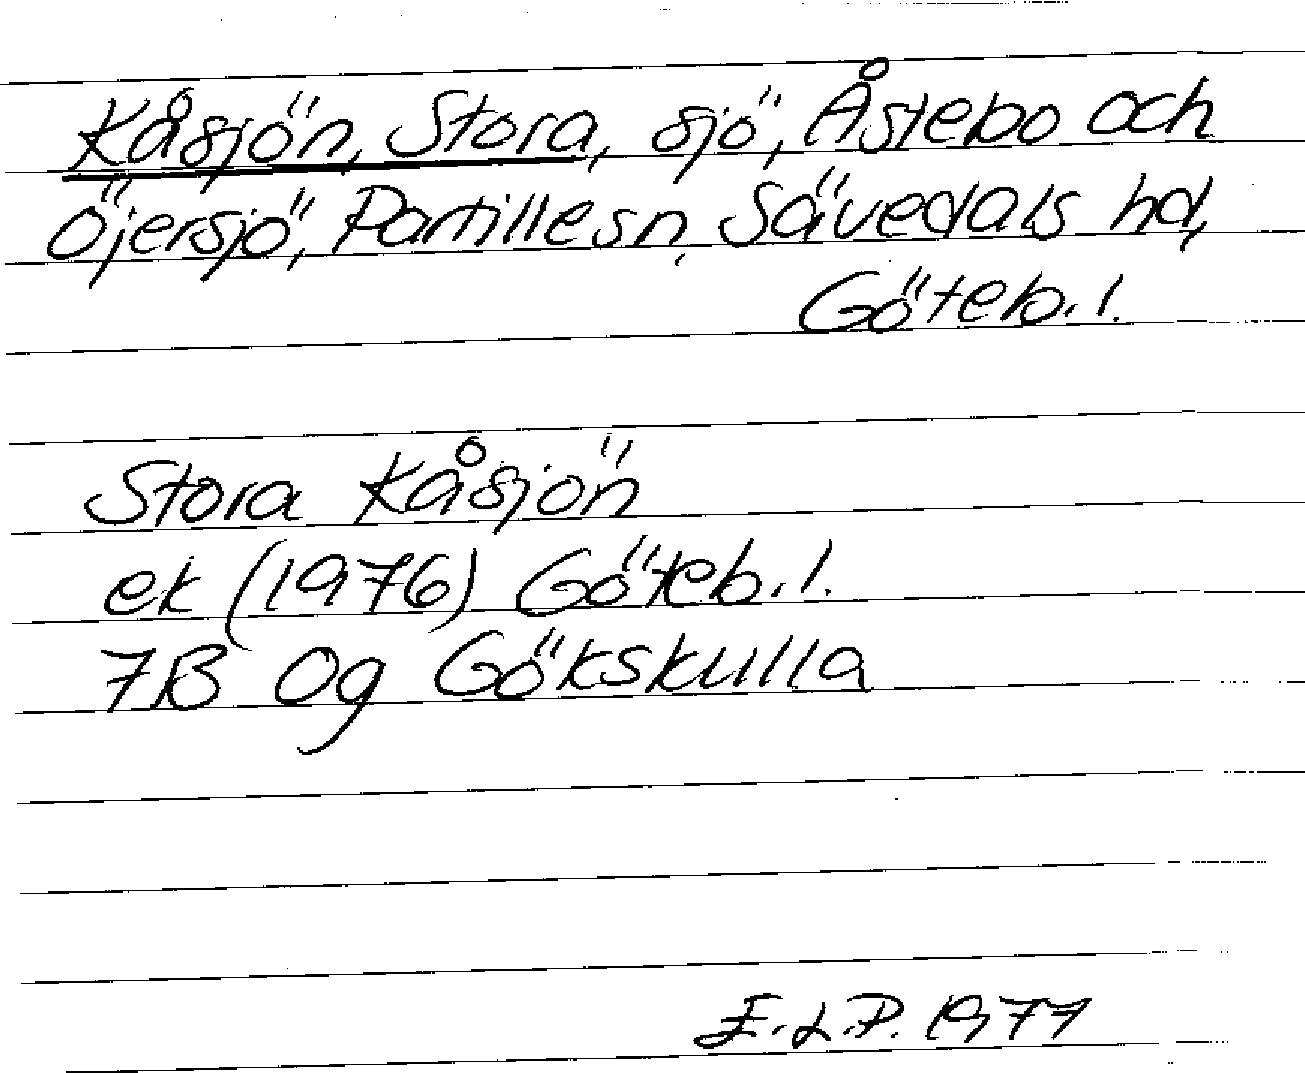 Kåsjön, Stora, sjö, Åstebo och
Öjersjö, Partille sn, Sävedals hd,
Göteb. l.
Stora Kåsjön
ek (1976) Göteb. l.
7B 0g Gökskulla
E.L.P. 1977